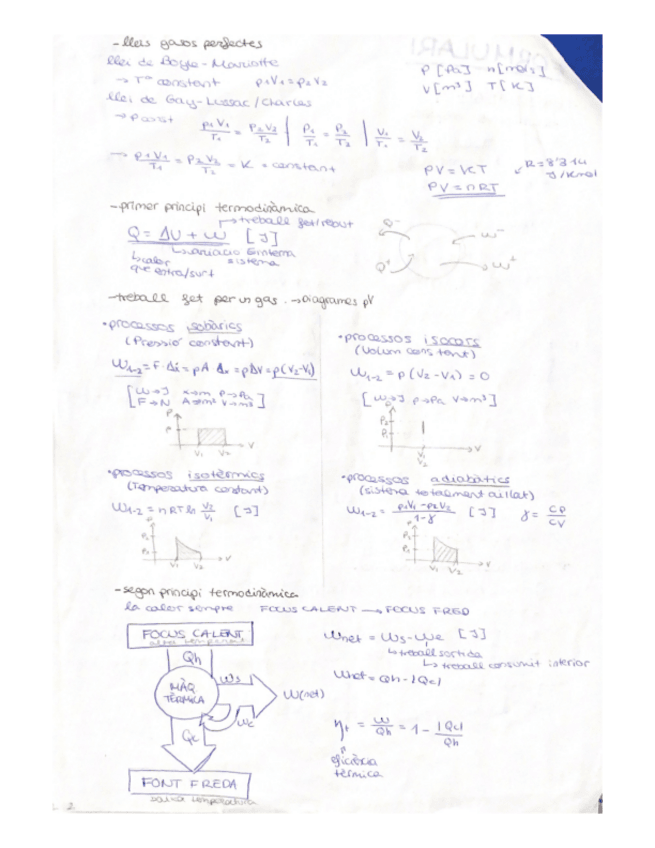 - lleis gasos perfectes
llei de Boyle-Mariotte
→ Tª constant   p₁V₁ = p₂V₂
P [Pa]   n [mols]
V [m³]   T [K]
llei de Gay-Lussac / Charles
→ p const   p₁V₁/T₁ = P₂V₂/T₂ | P₁/T₁ = P₂/T₂ | V₁/T₁ = V₂/T₂
→ p₁V₁/T₁ = P₂V₂/T₂ = K = constant
PV = VCT   R = 8'314 J/K·mol
PV = nRT
- primer principi termodinàmica
→ treball fet/rebut
Q = ΔU + W   [J]
↳ variació E interna sistema
↳ calor que entra/surt
Q⁻   W⁻
Q⁺   W⁺
- treball fet per un gas → Diagrames pV
• processos isobàrics
(Pressió constant)
W₁₋₂ = F·Δx = pA Δx = pΔV = p(V₂-V₁)
[W→J   x→m   P→Pa
F→N   A→m²   V→m³]
P
P
V₁   V₂   V
• processos isocors
(Volum constant)
W₁₋₂ = p(V₂-V₁) = 0
[W→J   p→Pa   V→m³]
P
P₂
P₁
V
V₁
V₂
• processos isotèrmics
(Temperatura constant)
W₁₋₂ = nRT ln V₂/V₁   [J]
P₁
P₂
V₁   V₂   V
• processos adiabàtics
(sistema totalment aïllat)
W₁₋₂ = p₁V₁-p₂V₂/1-γ   [J]   γ = CP/CV
P₁
P₂
V₁   V₂   V
- segon principi termodinàmica
la calor sempre   FOCUS CALENT → FOCUS FRED
FOCUS CALENT
alta temperatura
Qh
MÀQ. TÈRMICA
Ws
W(net)
We
Qc
FONT FREDA
baixa temperatura
Wnet = Ws - We   [J]
↳ treball sortida
↳ treball consumit interior
Wnet = Qh - |Qc|
ηt = W/Qh = 1 - |Qc|/Qh
eficiència
tèrmica
2